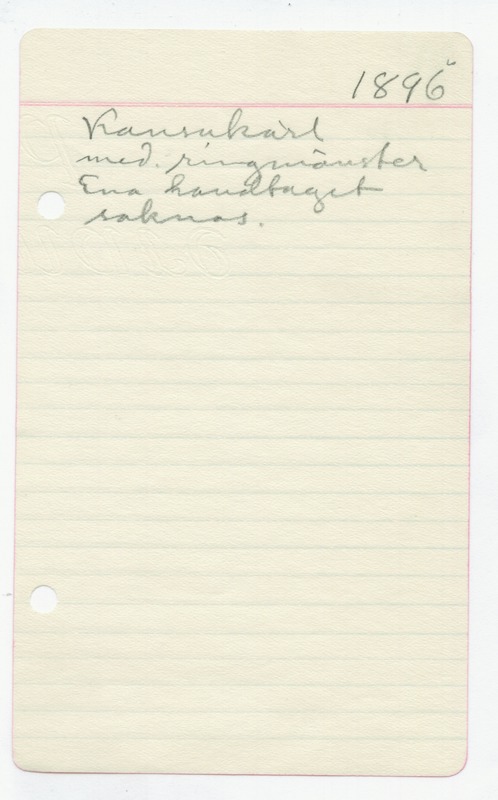 1896
Kansukärl
med. ringmönster
Ena handtaget
saknas.